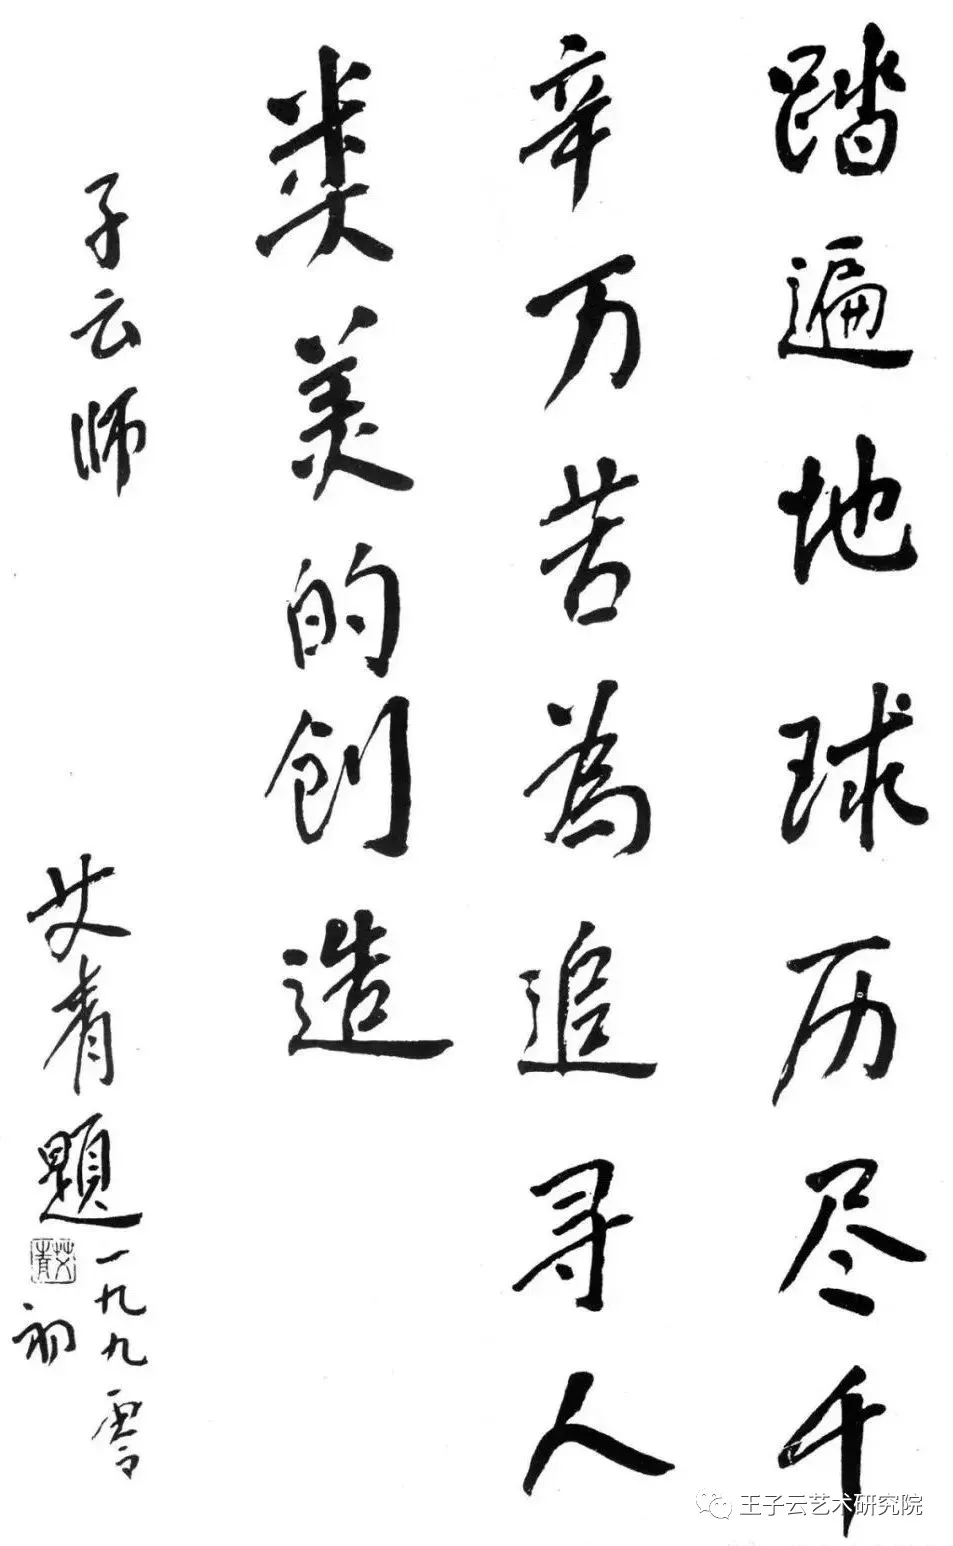 踏遍地球历尽千
辛万苦為追寻人
类美的创造
子云师
艾青題
一九九零
初
艾青
王子云艺术研究院